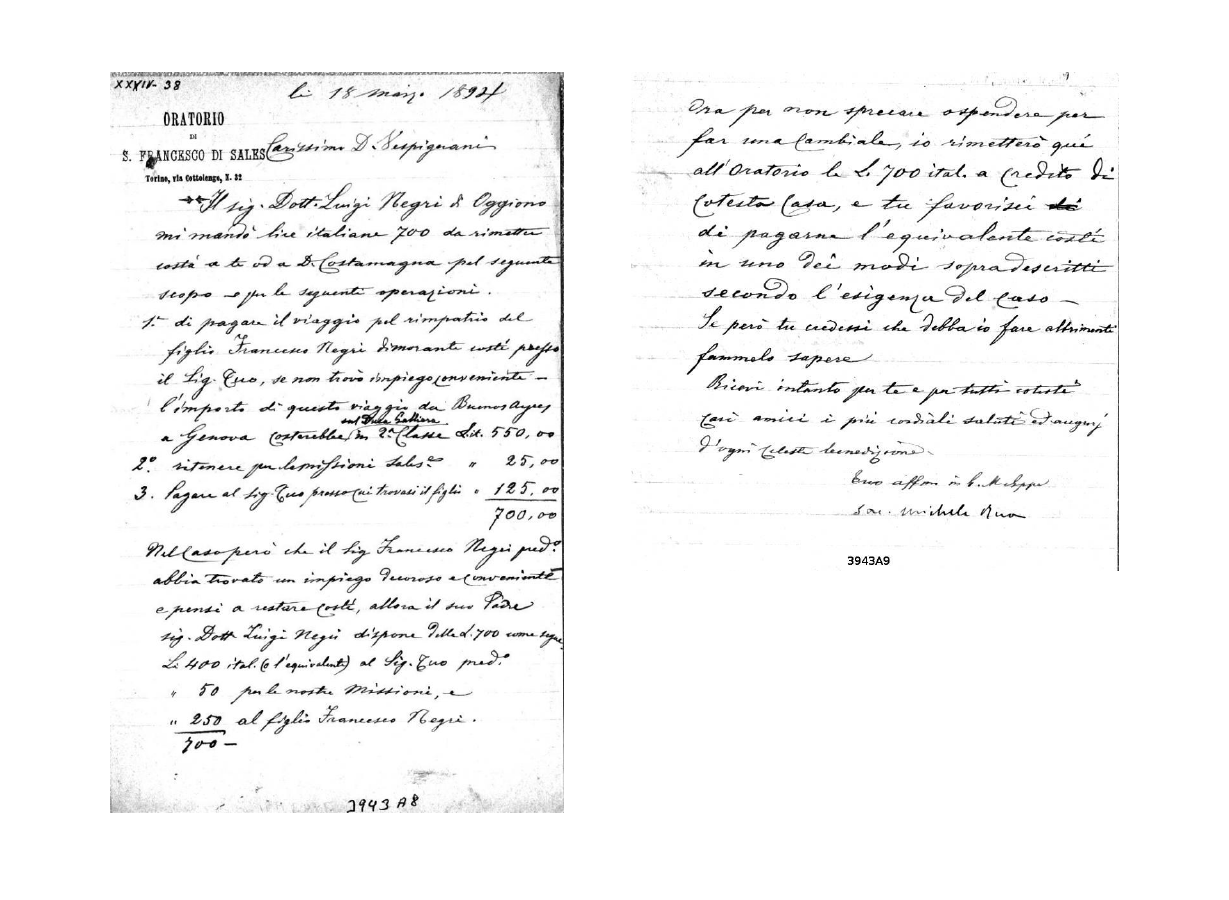 XXXIV-38
li 18 marzo 1894
ORATORIO
DI
S. FRANCESCO DI SALES
Torino, via Cottolengo, N. 32
Carissimo D. Vespignani
Il sig. Dott. Luigi Negri di Oggiono
mi mandò lire italiane 700 da rimettere
costà a te od a D. Costamagna pel seguente
scopo e per le seguenti operazioni.
1.° di pagare il viaggio pel rimpatrio del
figlio Francesco Negri dimorante costì presso
il Sig. Tuo, se non trovò impiego conveniente –
l'importo di questo viaggio da Buenos Ayres
sul Duca Galliera
a Genova costerebbe in 2.a Classe Lit. 550,00
2.° ritenere per le missioni Sales.e " 25,00
3. Pagare al Sig. Tuo presso cui trovasi il figlio " 125,00
700,00
Nel caso però che il Sig Francesco Negri pred.°
abbia trovato un impiego decoroso e conveniente
e pensi a restare costì, allora il suo Padre
sig. Dott Luigi Negri dispone delle L. 700 come segue
L. 400 ital. (o l'equivalente) al Sig. Tuo pred.°
" 50 per le nostre Missioni, e
" 250 al figlio Francesco Negri.
700 –
3943 A8
Ora per non sprecare o spendere per
far una Cambiale, io rimetterò qui
all'Oratorio le L. 700 ital. a Credito di
Cotesta Casa, e tu favorisci di
di pagarne l'equivalente costì
in uno dei modi sopradescritti
secondo l'esigenza del Caso –
Se però tu credessi che debba io fare altrimenti
fammelo sapere
Ricevi intanto per te e per tutti cotesti
Cari amici i più cordiali saluti ed augurj
d'ogni Celeste benedizione.
Tuo aff.mo in G. M. e Gppe
Sac. Michele Rua
3943A9